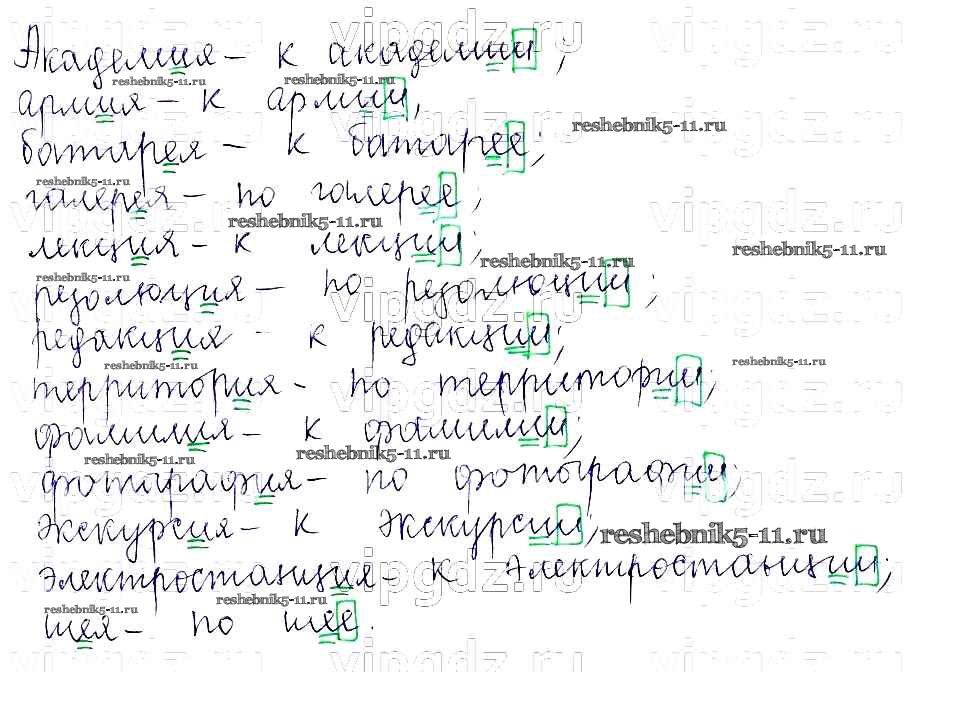 Академия – к академии;
армия – к армии,
батарея – к батарее;
галерея – по галерее;
лекция – к лекции;
резолюция – по резолюции;
редакция – к редакции;
территория – по территории;
фамилия – к фамилии;
фотография – по фотографии;
Экскурсия – к экскурсии;
электростанция – к электростанции;
шея – по шее.
vipgdz.ru
reshebnik5-11.ru